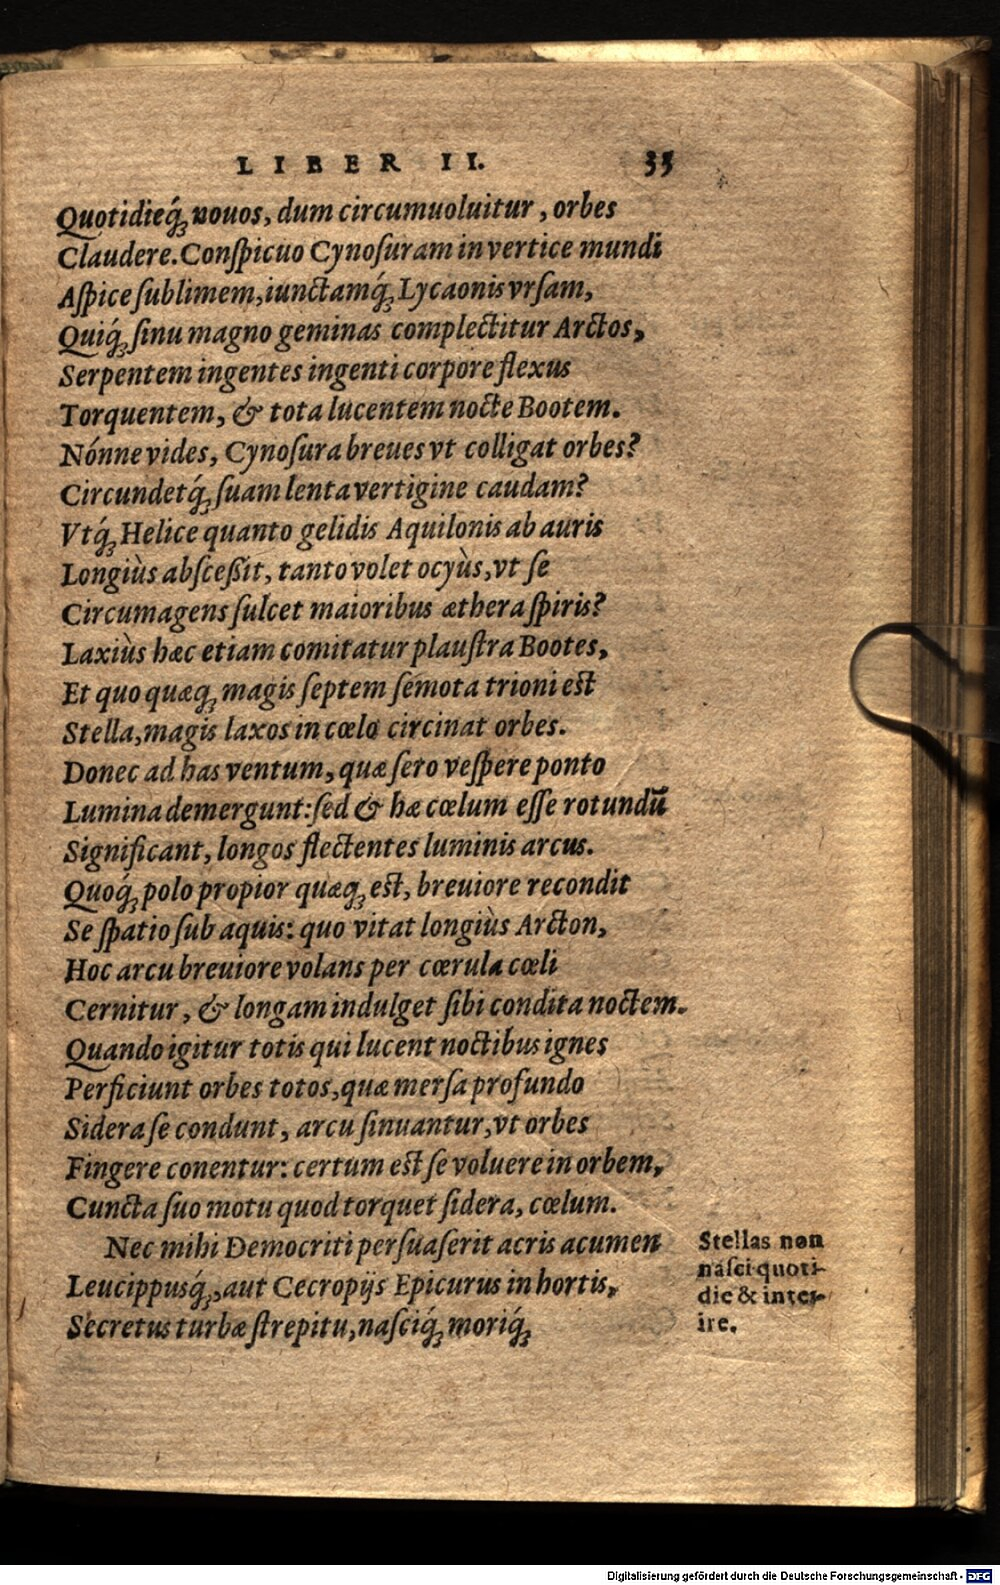 LIBER II. 35
Quotidieq́; nouos, dum circumuoluitur, orbes
Claudere. Conſpicuo Cynoſuram in vertice mundi
Aſpice ſublimem, iunctamq́; Lycaonis vrſam,
Quiq́; ſinu magno geminas complectitur Arctos,
Serpentem ingentes ingenti corpore flexus
Torquentem, & tota lucentem nocte Bootem.
Nónne vides, Cynoſura breues vt colligat orbes?
Circundetq́; ſuam lenta vertigine caudam?
Vtq́; Helice quanto gelidis Aquilonis ab auris
Longiùs abſceßit, tanto volet ocyùs, vt ſe
Circumagens ſulcet maioribus æthera ſpiris?
Laxiùs hæc etiam comitatur plauſtra Bootes,
Et quo quæq; magis ſeptem ſemota trioni eſt
Stella, magis laxos in cœlo circinat orbes.
Donec ad has ventum, quæ ſero veſpere ponto
Lumina demergunt: ſed & hæ cœlum eſſe rotundū
Significant, longos flectentes luminis arcus.
Quoq́; polo propior quæq; eſt, breuiore recondit
Se ſpatio ſub aquis: quo vitat longiùs Arcton,
Hoc arcu breuiore volans per cœrula cœli
Cernitur, & longam indulget ſibi condita noctem.
Quando igitur totis qui lucent noctibus ignes
Perficiunt orbes totos, quæ merſa profundo
Sidera ſe condunt, arcu ſinuantur, vt orbes
Fingere conentur: certum eſt ſe voluere in orbem,
Cuncta ſuo motu quod torquet ſidera, cœlum.
Nec mihi Democriti perſuaſerit acris acumen
Leucippusq́;, aut Cecropijs Epicurus in hortis,
Secretus turbæ ſtrepitu, naſciq́; moriq́;
Stellas non
naſci quoti-
die & inter-
ire.
Digitalisierung gefördert durch die Deutsche Forschungsgemeinschaft - DFG